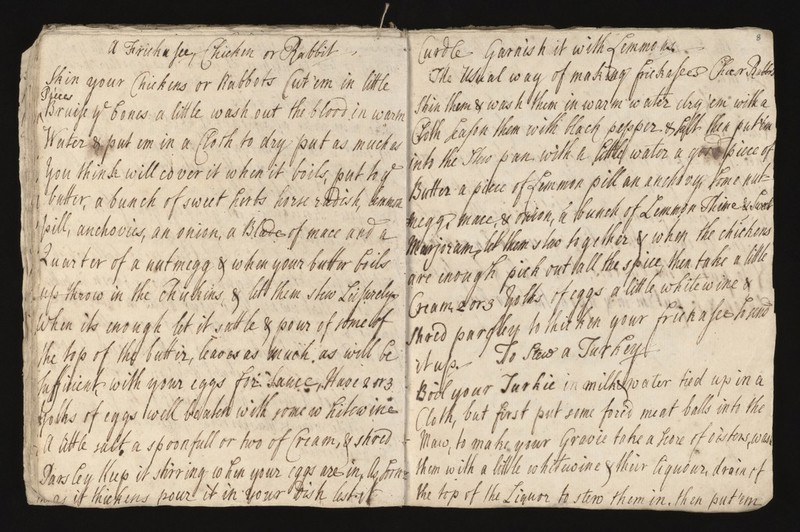 A Frickasee, Chicken or Rabbit
Skin your Chickens or Rabbots Cut 'em in little
Pieces
Bruise yᵉ bones a little wash out the blood in warm
Water & put em in a Cloth to dry put as much as
you think will cover it when it boils, put to yᵉ
butter, a bunch of sweet herbs horse radish, lemmon
pill, anchovies, an onion, a Blade of mace and a
Quarter of a nutmegg & when your butter boils
up throw in the Chickins, & let them stew Liesurely
When its enough let it settle & pour of some of
the top of the butter, leave as much, as will be
suffitient with your eggs for sauce, Have 2 or 3
yolks of eggs well beaten with some whitewine
a little salt a spoonfull or two of Cream, & shred
Parsley Keep it stirring when your eggs are in, As soon
as it thickens pour it in your Dish lest it
8
Curdle Garnish it with Lemmons
The Usual way of making frickasees Chic or Rabbits
Skin them & wash them in warm water dry 'em with a
Cloth season them with black pepper & salt then put 'em
into the Stew pan with a little water a good piece of
Butter a piece of Lemmon pill an anchovy some nut
megg, mace, & onion, a bunch of Lemmon Thime & Sweet
Marjoram, let them stew together & when the chickens
are enough pick out all the spice, then take a little
Cream 2 or 3 yolks of eggs a little whitewine &
shred parsley to thicken your frickasee & send
it up. To Stew a Turkey
Boil your Turkie in milk & water tied up in a
Cloth, but first put some forced meat balls into the
Maw, to make your Gravie take a score of oisters, wash
them with a little whitewine & their liquour, drain of
the top of the Liquor to stew them in, then put 'em